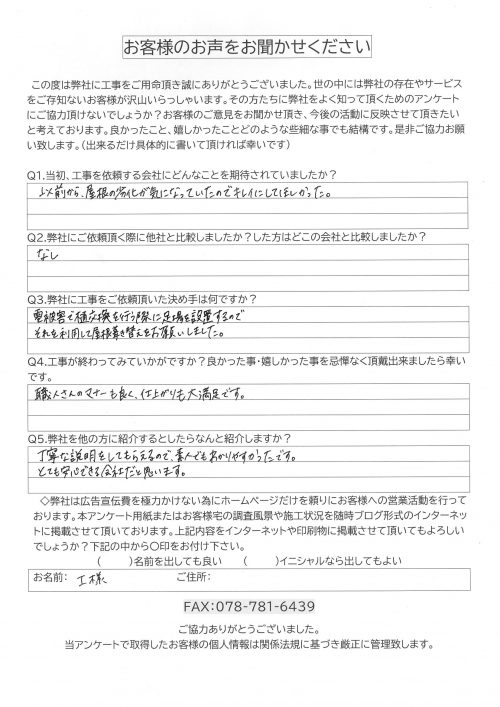 お客様のお声をお聞かせください
この度は弊社に工事をご用命頂き誠にありがとうございました。世の中には弊社の存在やサービス
をご存知ないお客様が沢山いらっしゃいます。その方たちに弊社をよく知って頂くためのアンケート
にご協力頂けないでしょうか？お客様のご意見をお聞かせ頂き、今後の活動に反映させて頂きたい
と考えております。良かったこと、嬉しかったことどのような些細な事でも結構です。是非ご協力お願
い致します。（出来るだけ具体的に書いて頂ければ幸いです）
Q1.当初、工事を依頼する会社にどんなことを期待されていましたか？
以前から、屋根の劣化が気になっていたのでキレイにしてほしかった。
Q2.弊社にご依頼頂く際に他社と比較しましたか？した方はどこの会社と比較しましたか？
なし
Q3.弊社に工事をご依頼頂いた決め手は何ですか？
雹被害で樋交換を行う際に足場を設置するので
それを利用して屋根葺き替えをお願いしました。
Q4.工事が終わってみていかがですか？良かった事・嬉しかった事を忌憚なく頂戴出来ましたら幸い
です。
職人さんのマナーも良く、仕上がりも大満足です。
Q5.弊社を他の方に紹介するとしたらなんと紹介しますか？
丁寧な説明をしてもらえるので、素人でもわかりやすかったです。
とても安心できる会社だと思います。
◇弊社は広告宣伝費を極力かけない為にホームページだけを頼りにお客様への営業活動を行って
おります。本アンケート用紙またはお客様宅の調査風景や施工状況を随時ブログ形式のインターネッ
トに掲載させて頂いております。上記内容をインターネットや印刷物に掲載させて頂いてもよろしい
でしょうか？下記の中から〇印をお付け下さい。
（　　）名前を出しても良い　（　　）イニシャルなら出してもよい
お名前： I様　ご住所：
FAX：078-781-6439
ご協力ありがとうございました。
当アンケートで取得したお客様の個人情報は関係法規に基づき厳正に管理致します。